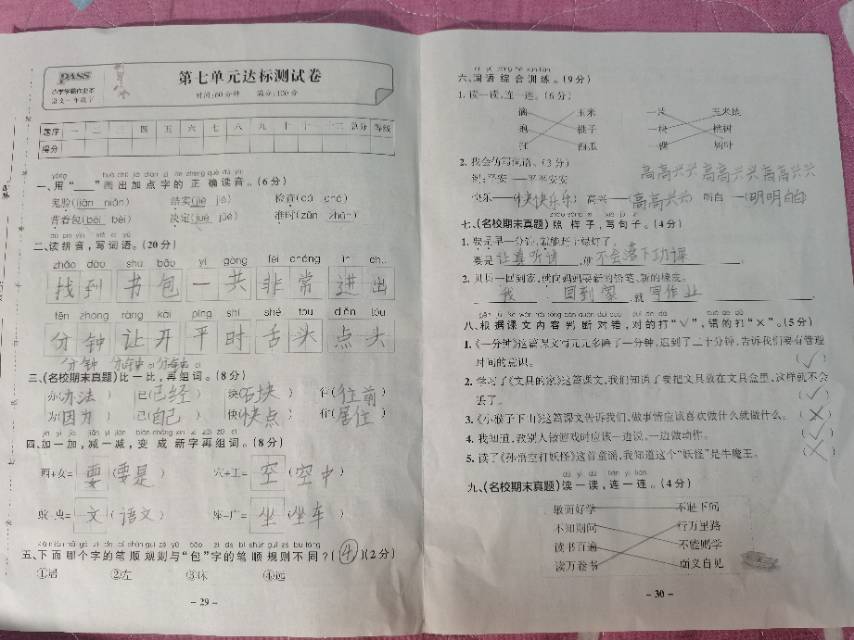 PASS
第七单元达标测试卷
小学学霸作业本
语文一年级下
时间:60分钟 满分:100分
题序 一 二 三 四 五 六 七 八 九 十 十一 十二 十三 总分 等级
得分
一、用“___”画出加点字的正确读音。(6分)
背着包(bēi bèi) 决定(jué jié) 准时(zǔn zhǔn)
二、读拼音,写词语。(20分)
zhǎo dào shū bāo yí gòng fēi cháng jìn chū
找到 书包 一共 非常 进出
fēn zhōng ràng kāi píng shí shé tou diǎn tóu
分钟 让开 平时 舌头 点头
分钟 分钟。分钟。
三、(名校期末真题)比一比,再组词。(8分)
办(办法) 已(已经) 块(石块) 往(往前)
为(因为) 己(自己) 快(快点) 住(居住)
四、加一加,减一减,变成新字再组词。(8分)
西+女= 要 (要是) 穴+工= 空 (空中)
文 (语文) 座-广= 坐 (坐车)
五、下面哪个字的笔顺规则与“包”字的笔顺规则不同?(④)(2分)
①居 ②左 ③床 ④远
- 29 -
六、词语综合训练。(9分)
1.读一读,连一连。(6分)
摘 玉米 一片 玉米地
抱 桃子 一块 桃树
扛 西瓜 一棵 树叶
2.我会仿写词语。(3分)
高高兴兴 高高兴兴 高高兴兴
例:平安——平平安安
快乐——(快快乐乐) 高兴——(高高兴兴) 明白——(明明白白
七、(名校期末真题)照样子,写句子。(4分)
1.要是早一分钟,就能赶上绿灯了。
要是 认真听讲 ,就 不会落下功课
2.贝贝一回到家,就向妈妈要新的铅笔、新的橡皮。
我 一 回到家 ,就 写作业
八、根据课文内容判断对错,对的打“√”,错的打“×”。(5分)
1.《一分钟》这篇课文写元元多睡了一分钟,迟到了二十分钟,告诉我们要有管理
时间的意识。 (√)
2.学习了《文具的家》这篇课文,我们知道了要把文具放在文具盒里,这样就不会
丢了。 (√)
3.《小猴子下山》这篇课文告诉我们,做事情应该喜欢做什么就做什么。 (×)
4.我知道,教别人做游戏时应该一边说,一边做动作。 (√)
5.读了《孙悟空打妖怪》这首童谣,我知道这个“妖怪”是牛魔王。 (×)
九、(名校期末真题)读一读,连一连。(4分)
敏而好学 不耻下问
不知则问 行万里路
读书百遍 不能则学
读万卷书 而义自见
- 30 -